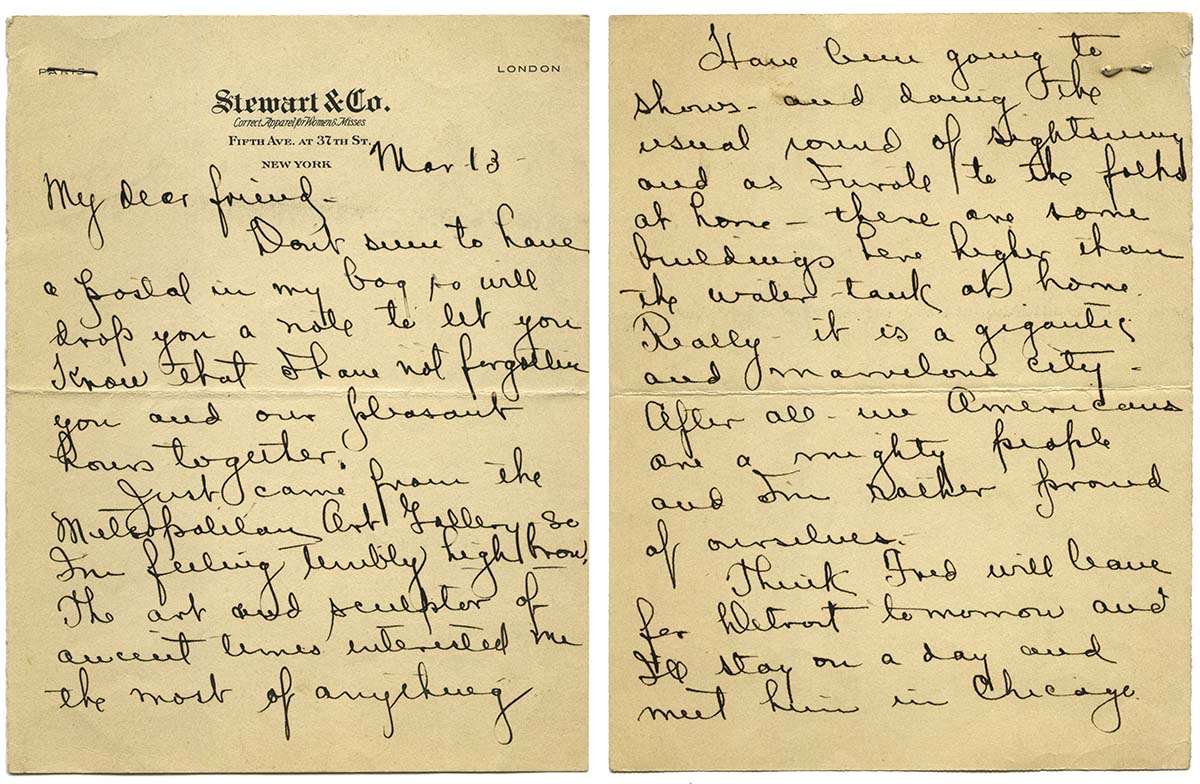 PARIS
LONDON
Stewart & Co.
Correct Apparel for Women & Misses
FIFTH AVE. AT 37TH ST.
NEW YORK
Mar 13 -
My dear friend -
Dont seem to have
a postal in my bag so will
drop you a note to let you
know that I have not forgotten
you and our pleasant
hours together.
Just came from the
Metropolitan Art Gallery so
I'm feeling terribly high brow.
The art and sculptor of
ancient times interested me
the most of anything
Have been going to
shows - and doing the
usual round of sightseeing
and as I wrote to the folks
at home - there are some
buildings here higher than
the water-tank at home.
Really - it is a gigantic
and marvelous city -
After all - we Americans
are a mighty people
and I'm rather proud
of ourselves.
Think Fred will leave
for Detroit tomorrow and
I'll stay on a day and
meet him in Chicago.